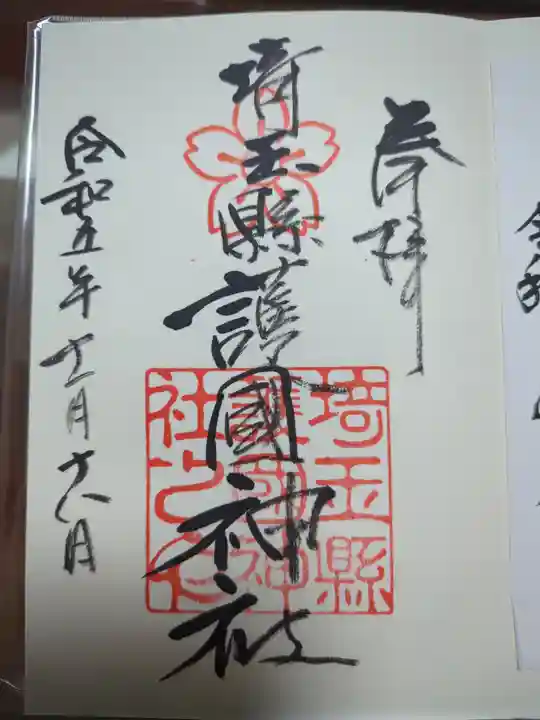 奉拝
埼玉縣護國神社
埼玉縣
護國神
社之印
令和五年十一月十八日